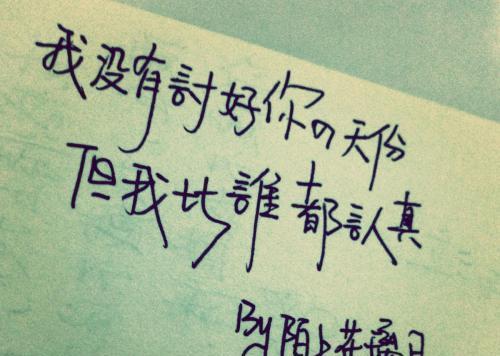 我没有討好你の天份
但我比誰都認真
By陌上